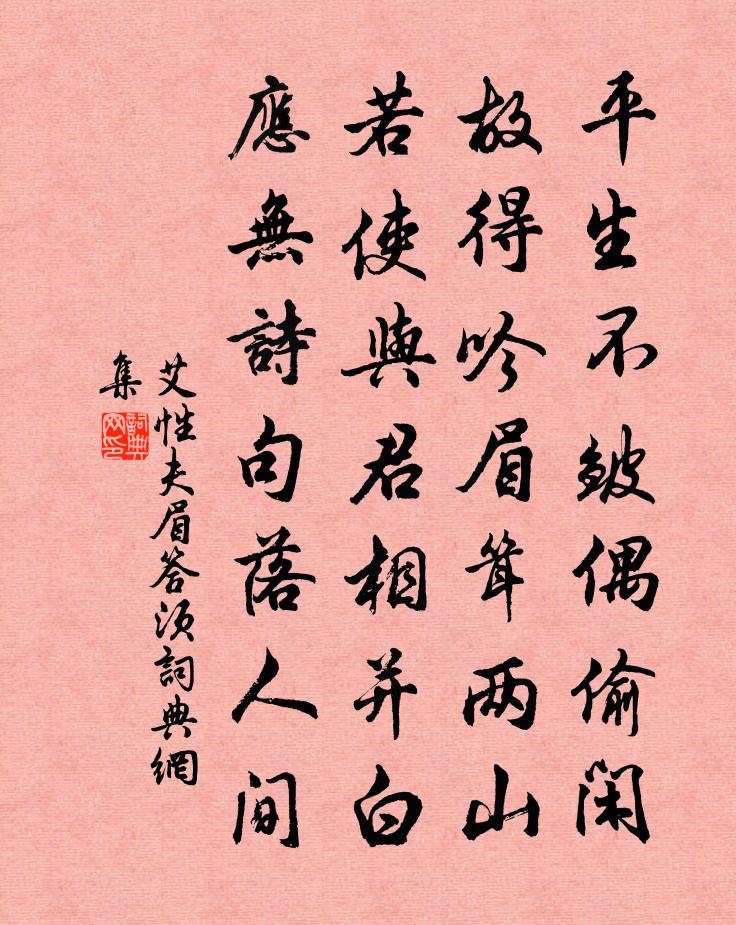 平生不皴偶偷閑
故得吟眉耸两山
若使與君相并白
應無詩句落人间
艾性夫眉答须詞典網
集
詞典
网印